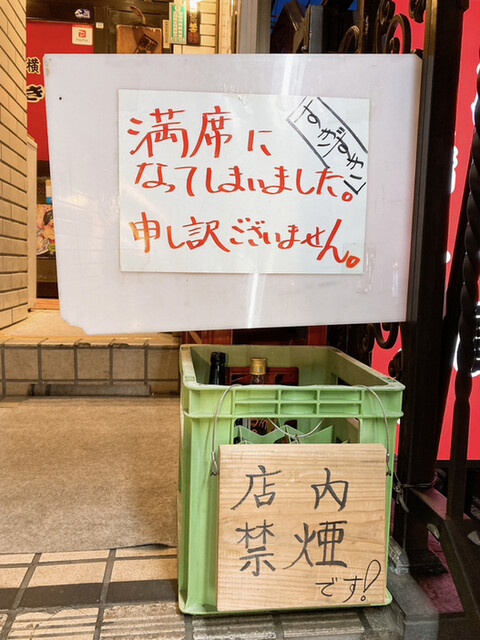 横
き
満席に
なってしまいました。
申し訳ございません。
店内
禁煙
です!